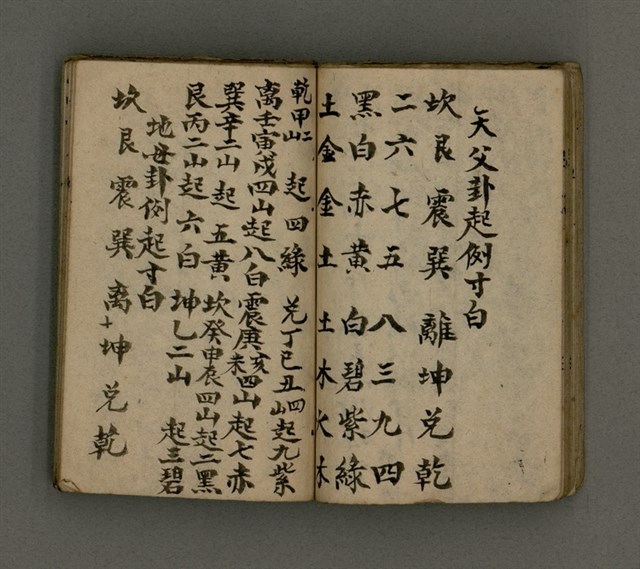 天父卦起例寸白
坎艮震巽離坤兌乾
二六七五八三九四
黑白赤黄白碧紫綠
土金金土土木火木
乾甲二山起四綠 兌丁巳丑四山起九紫
离壬寅戌四山起八白震庚亥未四山起七赤
巽辛二山起五黄坎癸申辰四山起二黑
艮丙二山起六白坤乙二山起三碧
地母卦例起寸白
坎艮震巽离坤兌乾